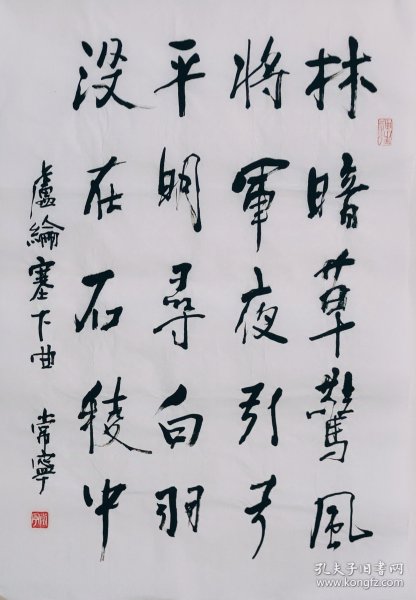 林暗草驚風
將軍夜引弓
平明尋白羽
没在石稜中
盧綸塞下曲 常寧
孔夫子旧书网
www.kongfz.com